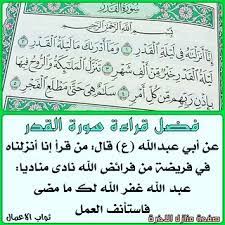 سورة القدر
بسم الله الرحمن الرحيم
إنا أنزلناه في ليلة القدر وما أدراك ما ليلة القدر
ليلة القدر خير من ألف شهر تنزل الملائكة والروح فيها
بإذن ربهم من كل أمر سلام هي حتى مطلع الفجر
فضل قراءة سورة القدر
عن أبي عبدالله (ع) قال: من قرأ إنا أنزلناه
في فريضة من فرائض الله نادى مناديا:
عبد الله غفر الله لك ما مضى
فاستأنف العمل
ثواب الاعمال
صفحة منازل الاخرة